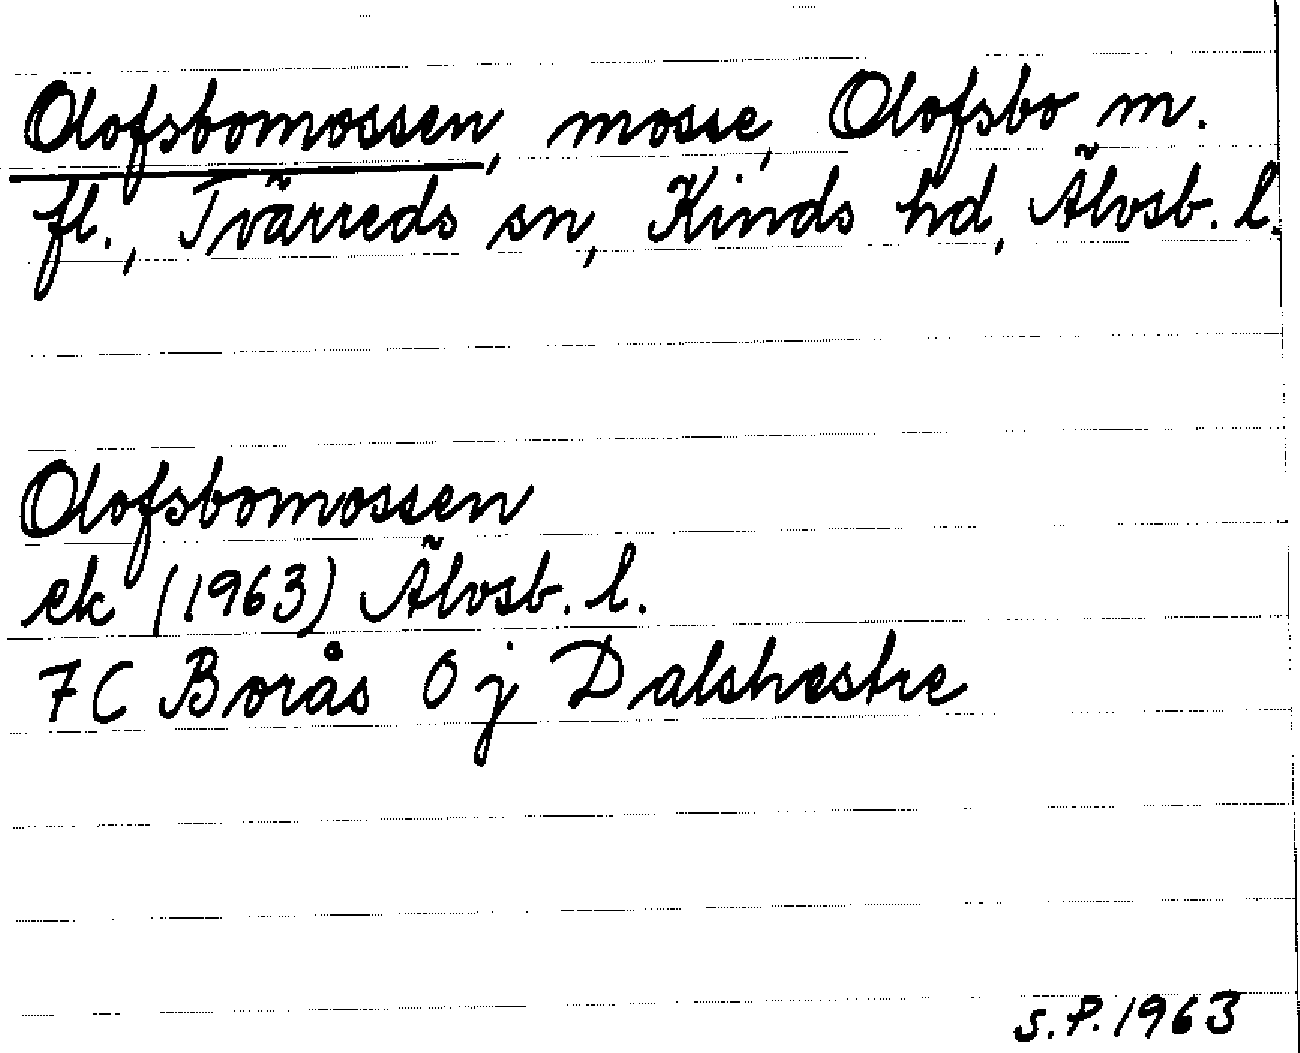 Olofsbomossen, mosse, Olofsbo m.
fl., Tvärreds sn, Kinds hd, Älvsb. l.
Olofsbomossen
ek (1963) Älvsb. l.
7C Borås 0j Dalshestre
S.P. 1963